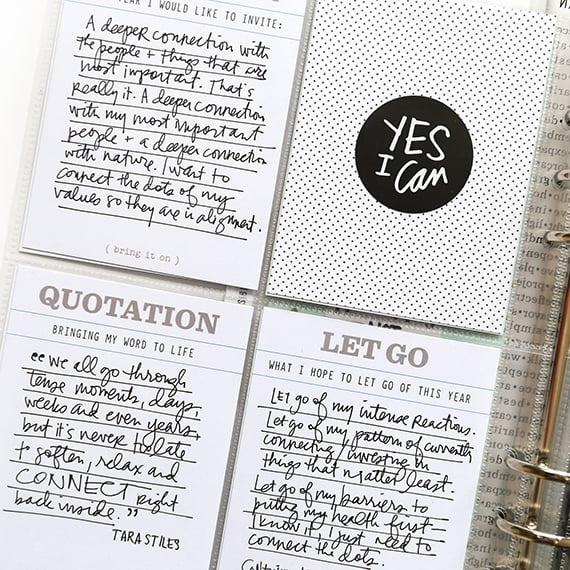 YEAR I WOULD LIKE TO INVITE:
A deeper connection with
the people + things that are
most important. That's
really it. A deeper connection
with my most important
people + a deeper connection
with nature. I want to
connect the dots of my
values so they are in alignment.
( bring it on )
YES
I
can
QUOTATION
BRINGING MY WORD TO LIFE
"we all go through
tense moments, days,
weeks and even years,
but it's never too late
to soften, relax and
CONNECT right
back inside."
TARA STILES
LET GO
WHAT I HOPE TO LET GO OF THIS YEAR
Let go of my intense reactions.
Let go of my pattern of currently
connecting / investing in
things that matter least.
Let go of my barriers to
putting my health first.
I know it, I just need to
connect the dots.